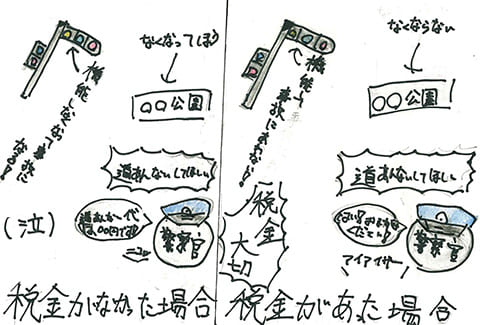 なくなってしまう
機能しなくなって事故になる!
〇〇公園
道あんないしてほしい
(泣)
道あんない代
100円です
警察官
ニコッ
税金がなかった場合
なくならない
事故にあわない!
〇〇公園
税金大切
道あんないしてほしい
警察官
アイアイサー
税金があった場合